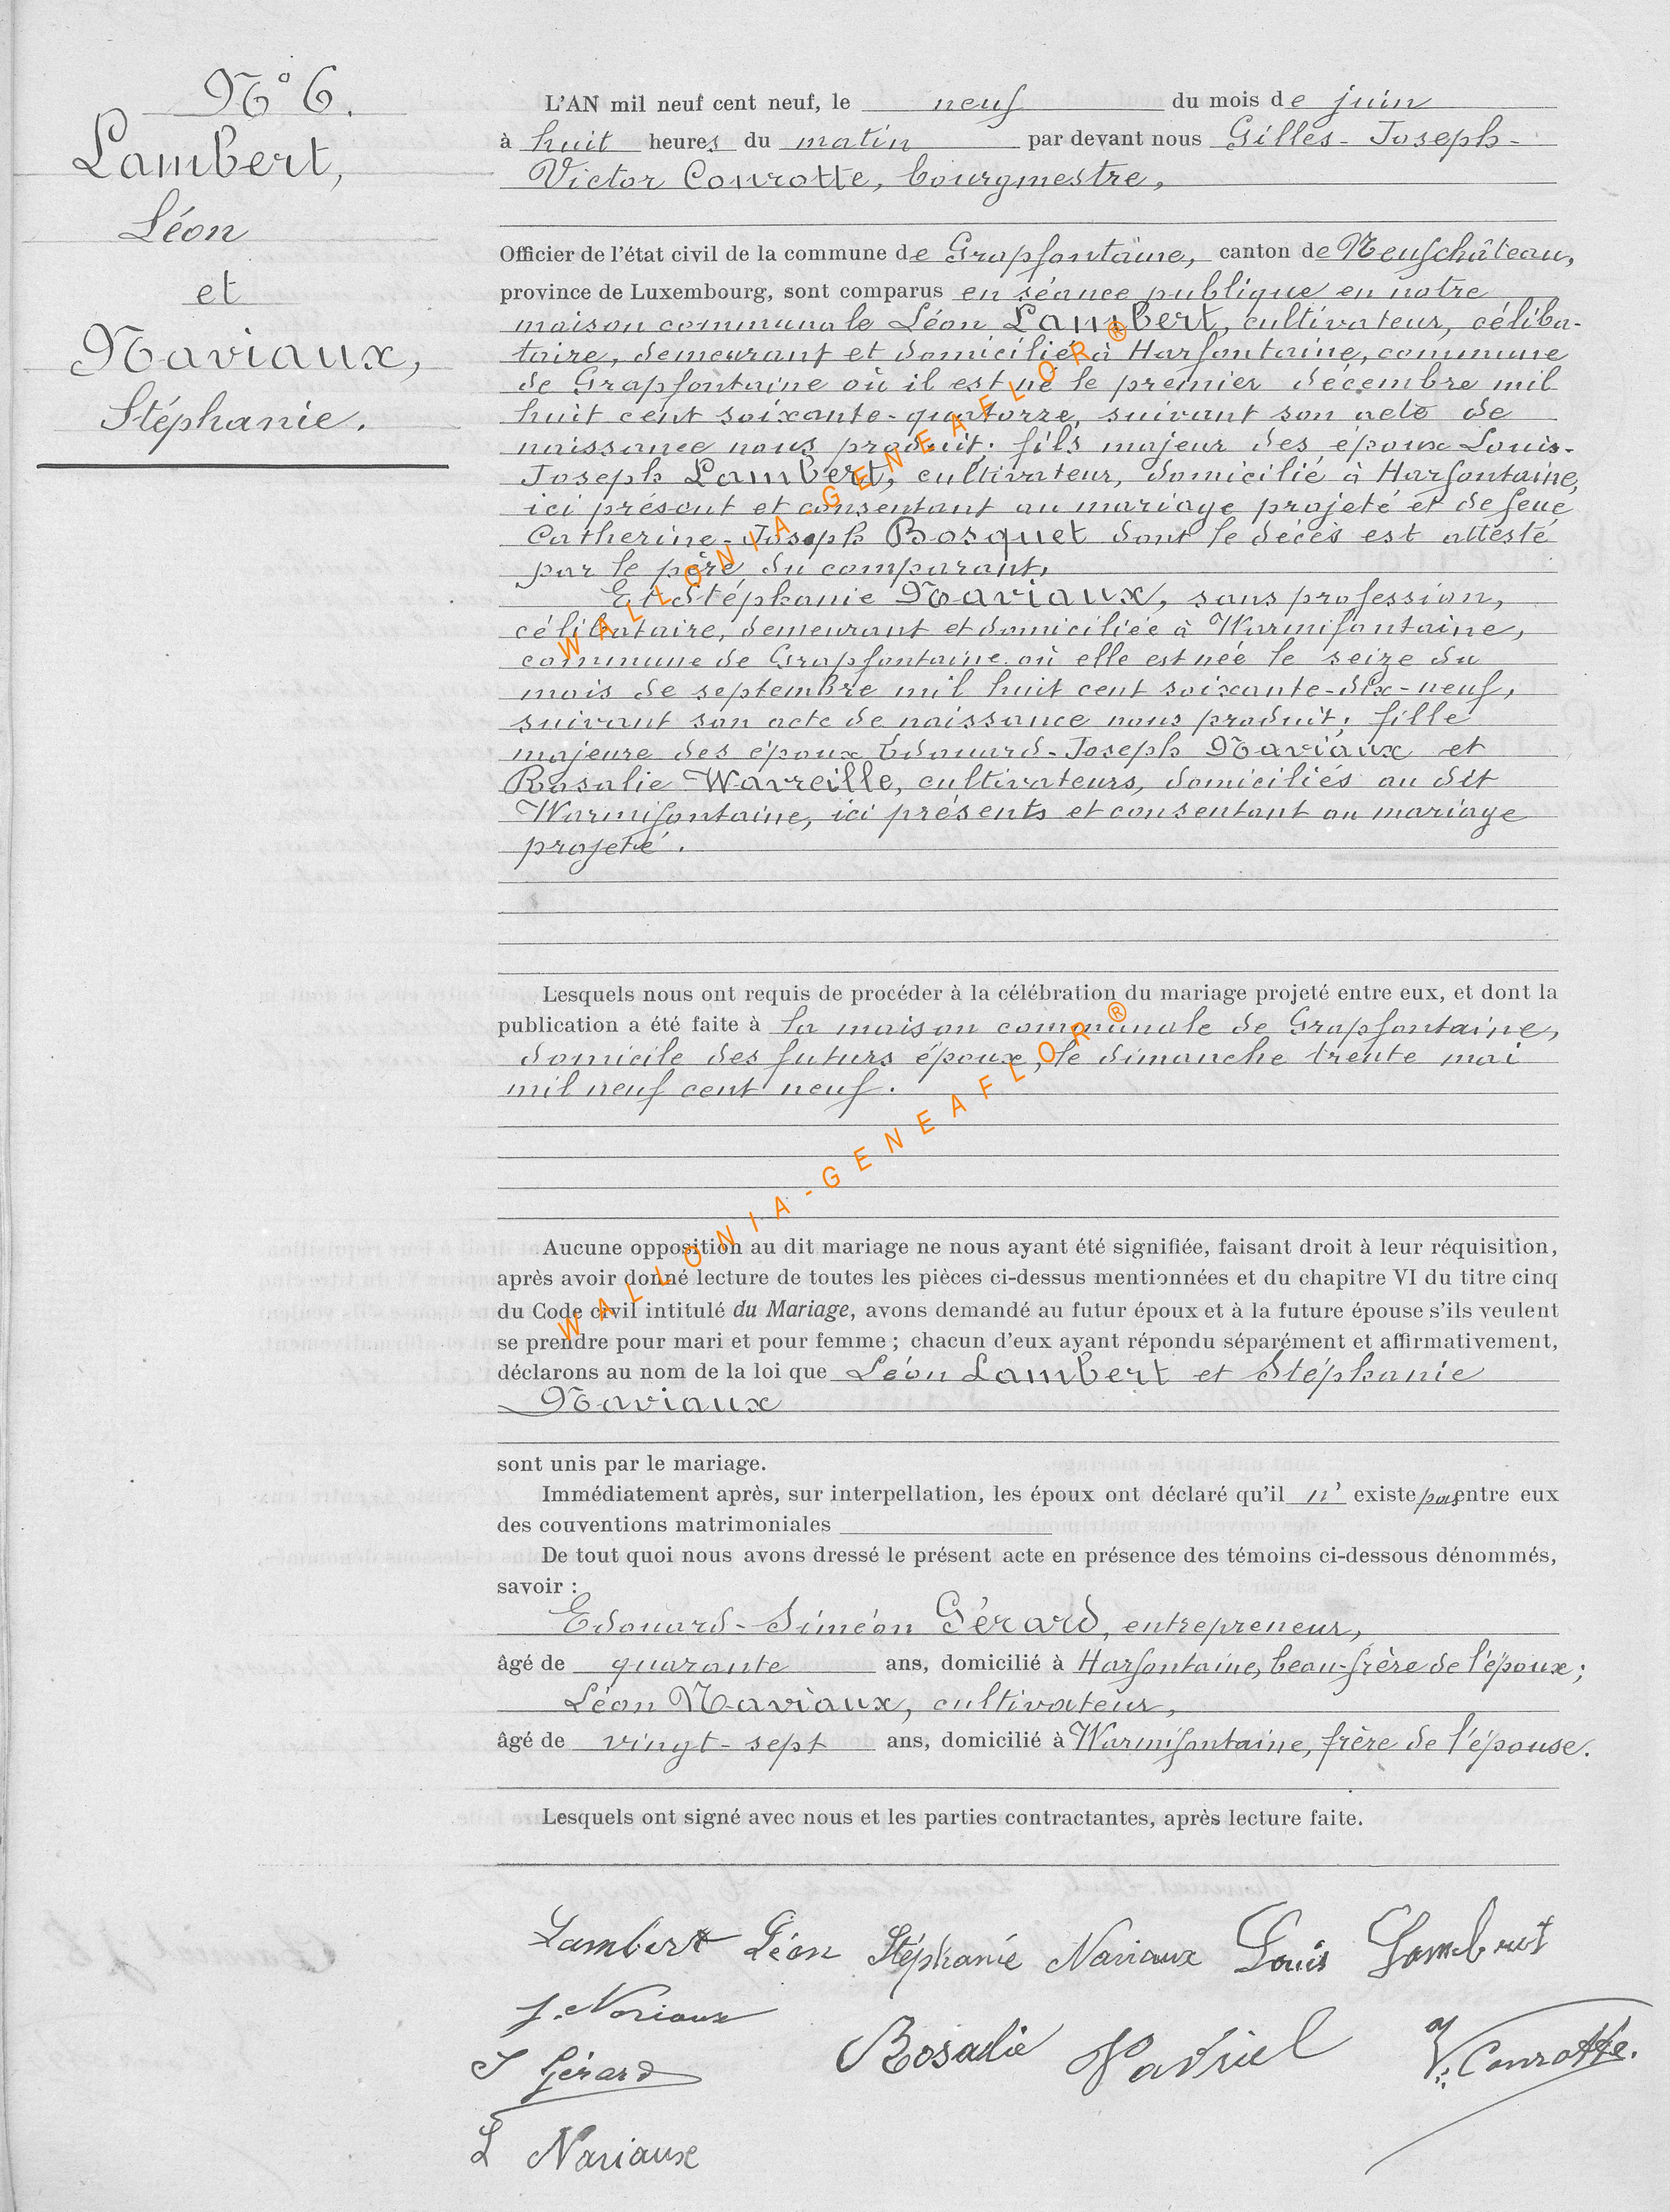 N° 6.
Lambert,
Léon
et
Naviaux,
Stéphanie.
L'AN mil neuf cent neuf, le neuf du mois de juin
à huit heures du matin par devant nous Gilles-Joseph-
Victor Conrotte, bourgmestre,
Officier de l'état civil de la commune de Grapfontaine, canton de Neufchâteau,
province de Luxembourg, sont comparus en séance publique en notre
maison communale Léon Lambert, cultivateur, céliba-
taire, demeurant et domicilié à Harfontaine, commune
de Grapfontaine où il est né le premier décembre mil
huit cent soixante-quatorze, suivant son acte de
naissance nous produit; fils majeur des époux Louis-
Joseph Lambert, cultivateur, domicilié à Harfontaine,
ici présent et consentant au mariage projeté et de feue
Catherine-Joseph Bosquet dont le décès est attesté
par le père du comparant,
Et Stéphanie Naviaux, sans profession,
célibataire, demeurant et domiciliée à Warmifontaine,
commune de Grapfontaine où elle est née le seize du
mois de septembre mil huit cent soixante-dix-neuf,
suivant son acte de naissance nous produit; fille
majeure des époux Edouard-Joseph Naviaux et
Rosalie Wavreille, cultivateurs, domiciliés au dit
Warmifontaine, ici présents et consentant au mariage
projeté.
Lesquels nous ont requis de procéder à la célébration du mariage projeté entre eux, et dont la
publication a été faite à la maison communale de Grapfontaine,
domicile des futurs époux, le dimanche trente mai
mil neuf cent neuf.
Aucune opposition au dit mariage ne nous ayant été signifiée, faisant droit à leur réquisition,
après avoir donné lecture de toutes les pièces ci-dessus mentionnées et du chapitre VI du titre cinq
du Code civil intitulé du Mariage, avons demandé au futur époux et à la future épouse s'ils veulent
se prendre pour mari et pour femme ; chacun d'eux ayant répondu séparément et affirmativement,
déclarons au nom de la loi que Léon Lambert et Stéphanie
Naviaux
sont unis par le mariage.
Immédiatement après, sur interpellation, les époux ont déclaré qu'il n' existe pas entre eux
des couventions matrimoniales
De tout quoi nous avons dressé le présent acte en présence des témoins ci-dessous dénommés,
savoir :
Edouard-Siméon Gérard, entrepreneur,
âgé de quarante ans, domicilié à Harfontaine, beau-frère de l'époux;
Léon Naviaux, cultivateur,
âgé de vingt-sept ans, domicilié à Warmifontaine, frère de l'épouse.
Lesquels ont signé avec nous et les parties contractantes, après lecture faite.
Lambert Léon Stéphanie Naviaux Louis Lambert
J. Naviaux
Rosalie Vavriel V. Conrotte.
S Gérard
L Naviaux
WALLONIA-GENEAFLOR®
WALLONIA-GENEAFLOR®